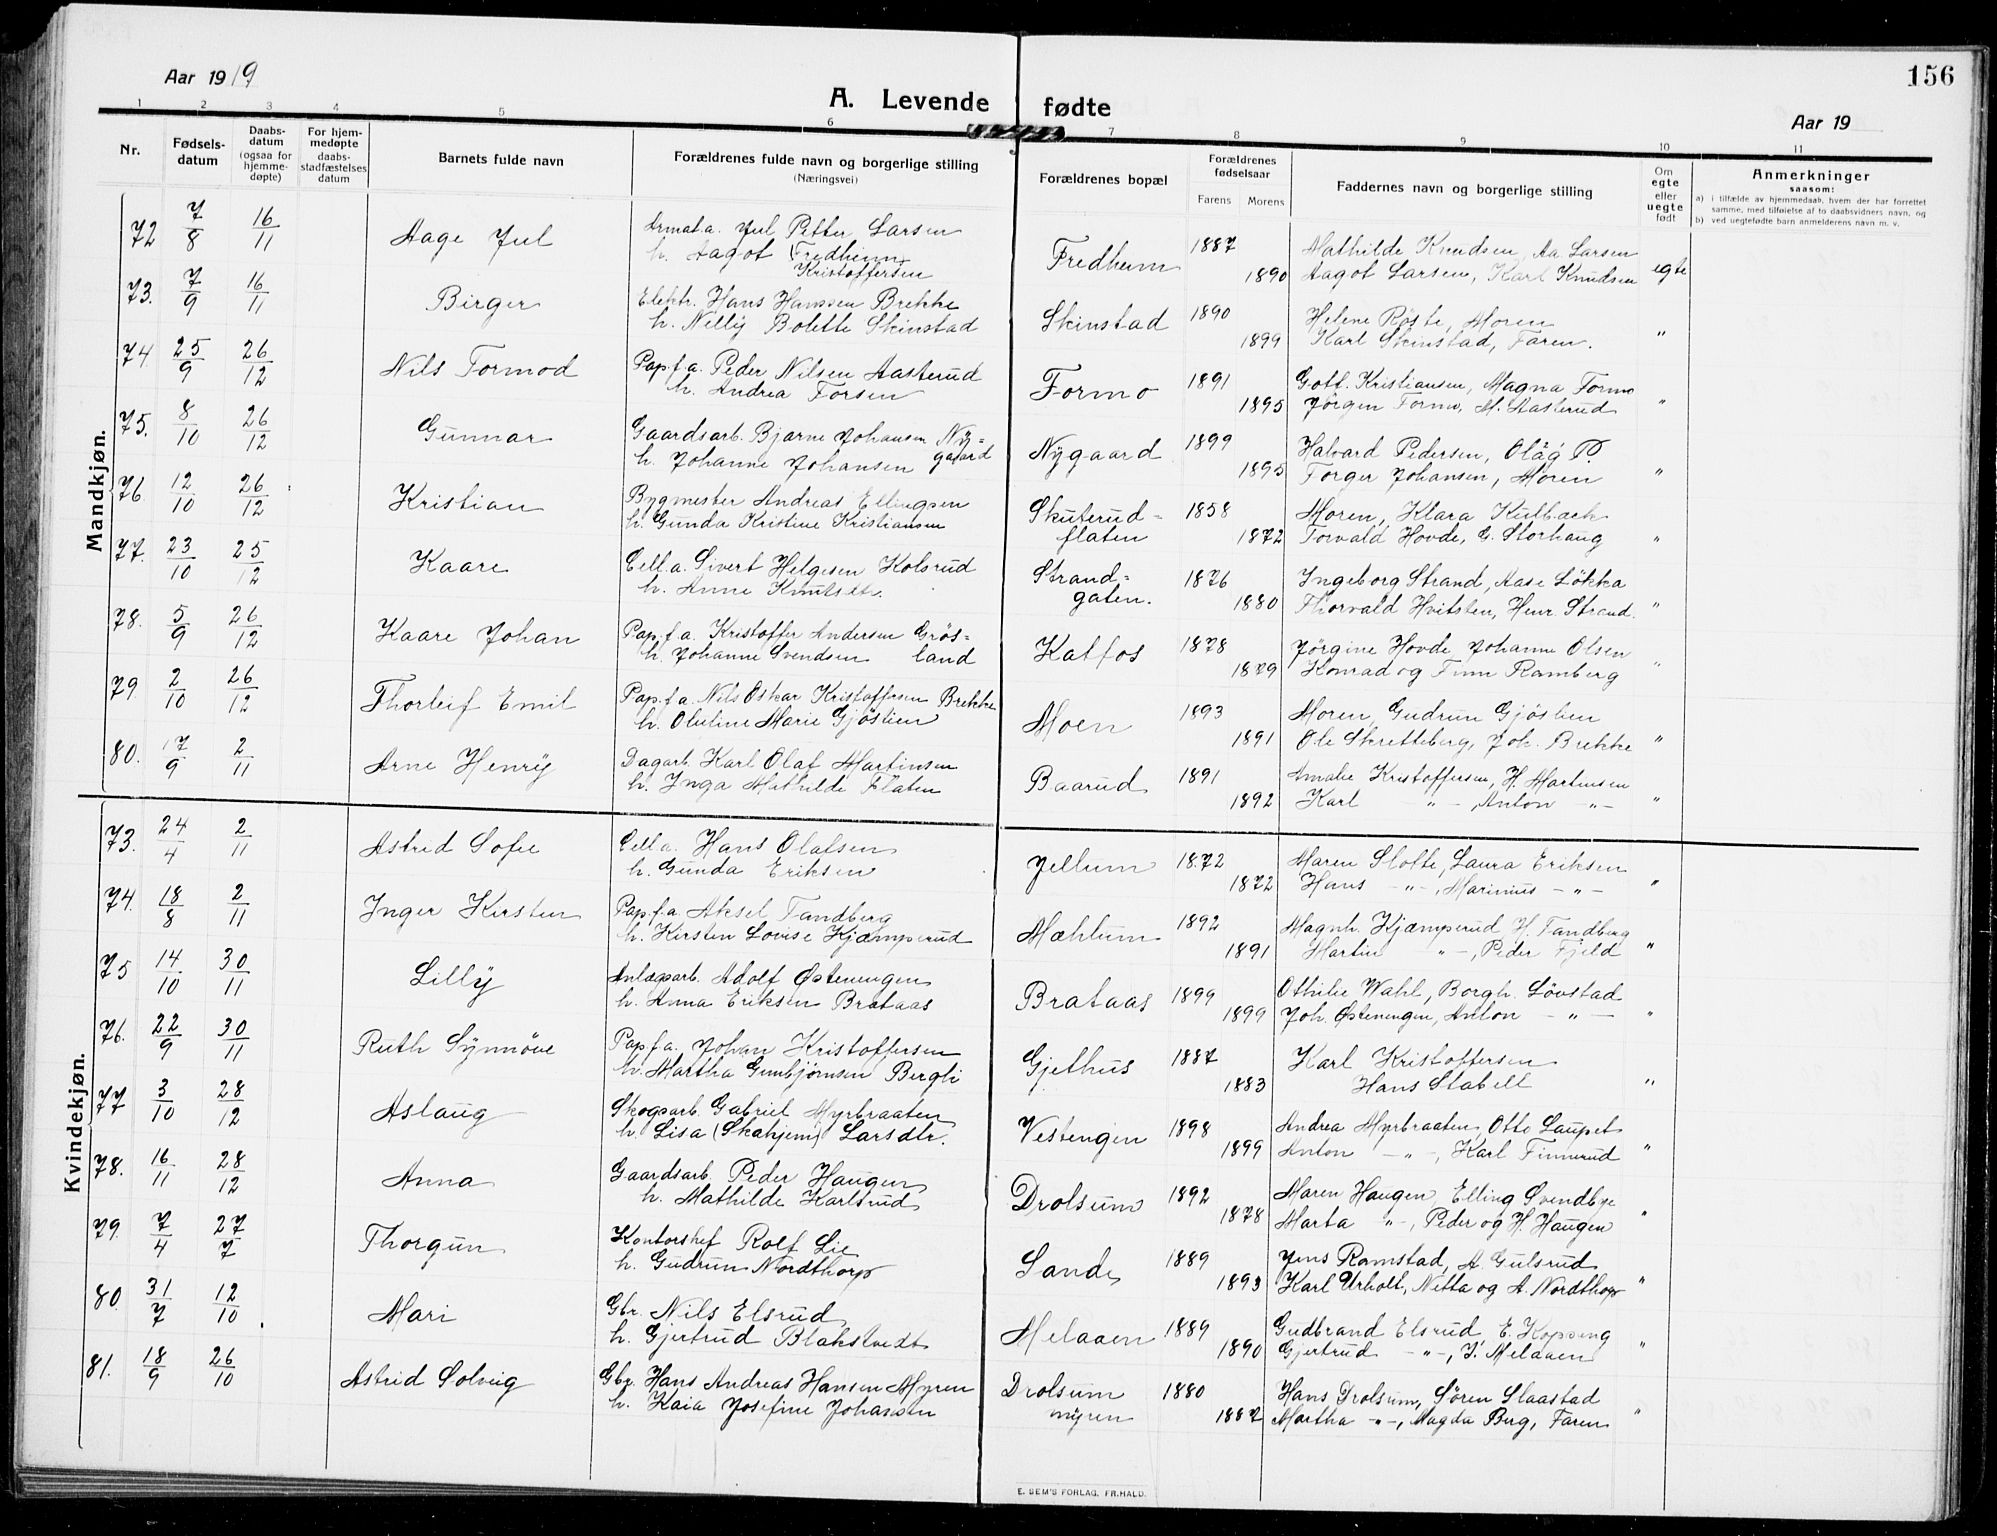 156
Aar 1919
A. Levende fødte
Aar 19
1 2 3 4 5 6 7 8 9 10 11
Nr.
Fødsels-
datum
Daabs-
datum
(ogsaa for
hjemme-
døpte)
For hjem-
medøpte
daabs-
stadfæstelses
datum
Barnets fulde navn
Forældrenes fulde navn og borgerlige stilling
(Næringsvei)
Forældrenes bopæl
Forældrenes
fødselsaar
Farens Morens
Faddernes navn og borgerlige stilling
Om
egte
eller
uegte
født
Anmerkninger
saasom:
a) i tilfælde av hjemmedaab, hvem der har forrettet
samme, med tilføielse af to daabsvidners navn, og
b) ved uegtefødte barn anmelderens navn m. v.
Mandkjøn.
72 7/8 16/11 Aage Jul Armat.a. Jul Petter Larsen Fredheim 1887 Mathilde Knudsen, Aa Larsen
h. Aagot Fredheim 1890 Aagot Larsen, Karl Knudsen egte
Kristoffersen
73. 7/9 16/11 Birger Elektr. Hans Hanssen Brekke Skinstad 1890 Helene Røste, Moren
h. Nelly Bolette Skinstad 1899 Karl Skinstad, Faren. "
74. 25/9 26/12 Nils Tormod Pap.f.a. Peder Nilsen Aasterud Formo 1891 Gott. Kristiansen, Magna Formo
h. Andrea Forsen 1895 Jørgen Formo, M. Aasterud "
75. 8/10 26/12 Gunnar Gaardsarb. Bjarne Johansen Ny= Nygaard 1899 Halvard Pedersen, Olag P.
h. Johanne Johansen gaard 1895 Torger Johansen, Moren "
76 12/10 26/12 Kristian Bygmester Andreas Ellingsen Skuterud= 1858 Moren, Klara Kulbach
h. Gunda Kristine Kristiansen flaten 1872 Torvald Hovde, G. Storhaug "
77. 23/10 25/12 Kaare Cell.a. Sivert Helgesen Kolsrud Strand= 1876 Ingeborg Strand, Aase Løkka
h. Anne gaten. 1880 Thorvald Hvitsten, Henr. Strand. "
78. 5/9 26/12 Kaare Johan Pap.f.a. Kristoffer Andersen Grøs= Katfos 1878 Jørgine Hovde, Johanne Olsen
h. Johanne Svendsen land 1879 Konrad og Finn Ramberg "
79. 2/10 26/12 Thorleif Emil Pap.f.a. Nils Oskar Kristoffersen Brekke Moen 1893 Moren, Gudrun Gjøslien
h. Oluline Marie Gjøslien 1891 Ole Skretteberg, Joh. Brekke "
80. 17/9 2/11 Arne Henry Dagarb. Karl Olaf Martinsen Baarud 1891 Amalie Kristoffersen, H. Martinsen
h. Inga Mathilde Flaten 1892 Karl - " -, Anton - " - "
Kvindekjøn.
73. 24/4 2/11 Astrid Sofie Cell.a. Hans Olafsen Jellum 1872 Maren Slotte, Laura Eriksen
h. Gunda Eriksen 1872 Hans - " -, Marinius - " - "
74. 18/8 2/11 Inger Kirsten Pap.f.a. Aksel Tandberg Mæhlum 1892 Magnh. Kjæmperud, H. Tandberg
h. Kirsten Lovise Kjæmperud 1891 Martin - " -, Peder Fjeld "
75 14/10 30/11 Lilly Anlægsarb. Adolf Østenengen Brataas 1899 Othilie Wahl, Borgh. Løvstad
h. Anna Eriksen Brataas 1899 Joh. Østenengen, Anton - " - "
76. 22/9 30/11 Ruth Synnøve Pap.f.a. Johan Kristoffersen Gjethus 1887 Karl Kristoffersen
h. Martha Gunbjørnsen Bergli 1883 Hans Stabell "
77 3/10 28/12 Aslaug Skogsarb. Gabriel Myrbraaten Vestengen 1898 Andrea Myrbraaten, Otto Laupet
h. Lisa (Skahjem) Larsdtr. 1899 Anton - " -, Karl Finnerud "
78. 16/11 28/12 Anna Gaardsarb. Peder Haugen Drolsum 1892 Maren Haugen, Elling Svendbye
h. Mathilde Karlsrud 1878 Marta " -, Peder og H. Haugen "
79. 7/4 27/7 Thorgun Kontorshef Rolf Lie Sande 1889 Jens Ramstad, A. Gulsrud
h. Gudrun Nordthorp 1893 Karl Urholt, Netta og A. Nordthorp "
80. 31/7 12/10 Mari Gbr. Nils Elsrud Melaaen 1889 Gudbrand Elsrud, E. Kopseng
h. Gjertrud Blakstvedt 1890 Gjertrud - " -, I. Melaaen "
81. 18/9 26/10 Astrid Solveig Gbr. Hans Andreas Hansen Myren Drolsum 1880 Hans Drolsum, Søren Slaastad
h. Kaia Josefine Johansen myren 1887 Martha - " -, Magda Berg, Faren "
E. SEM'S FORLAG. FR.HALD.